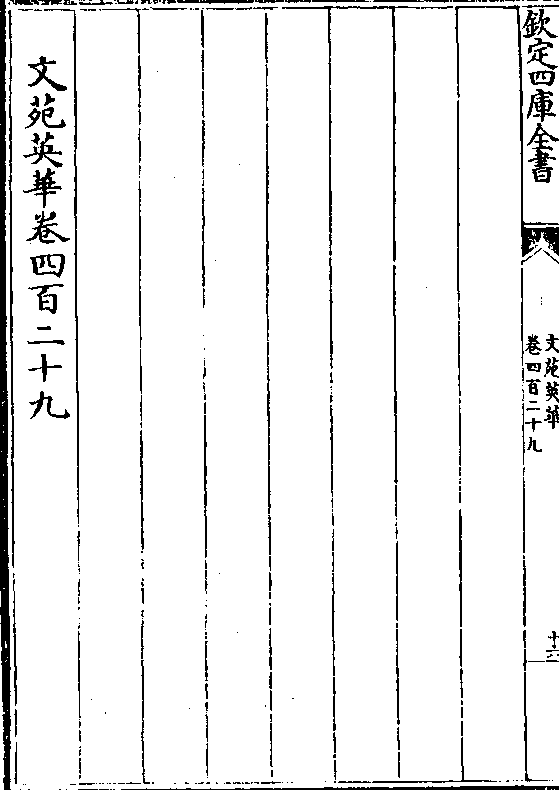 欽定四庫全書
文苑英華
卷四百二十九
十六
文苑英華卷四百二十九